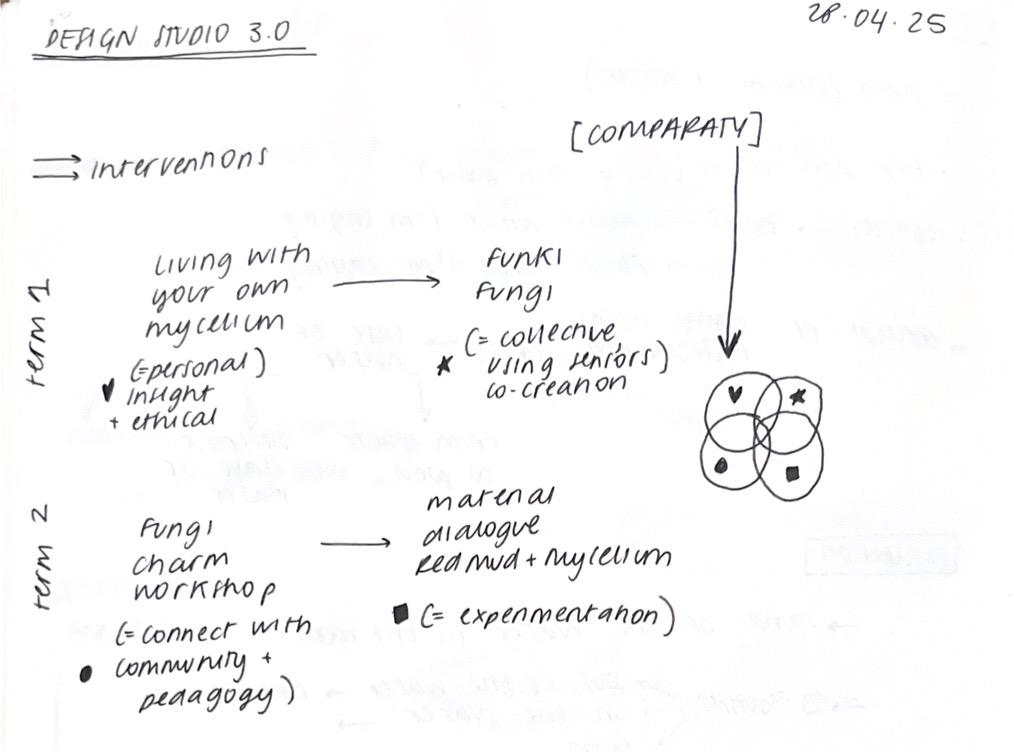 DESIGN STUDIO 3.0
28.04.25
interventions
[COMPARATY]
term 1
living with
your own
mycelium
(=personal)
insight
+ ethical
FUNKI
FUNGI
(= collective,
using sensors)
co-creation
term 2
Fungi
charm
workshop
(= connect with
community +
pedagogy)
material
dialogue
Red mud + Mycelium
(= experimentation)